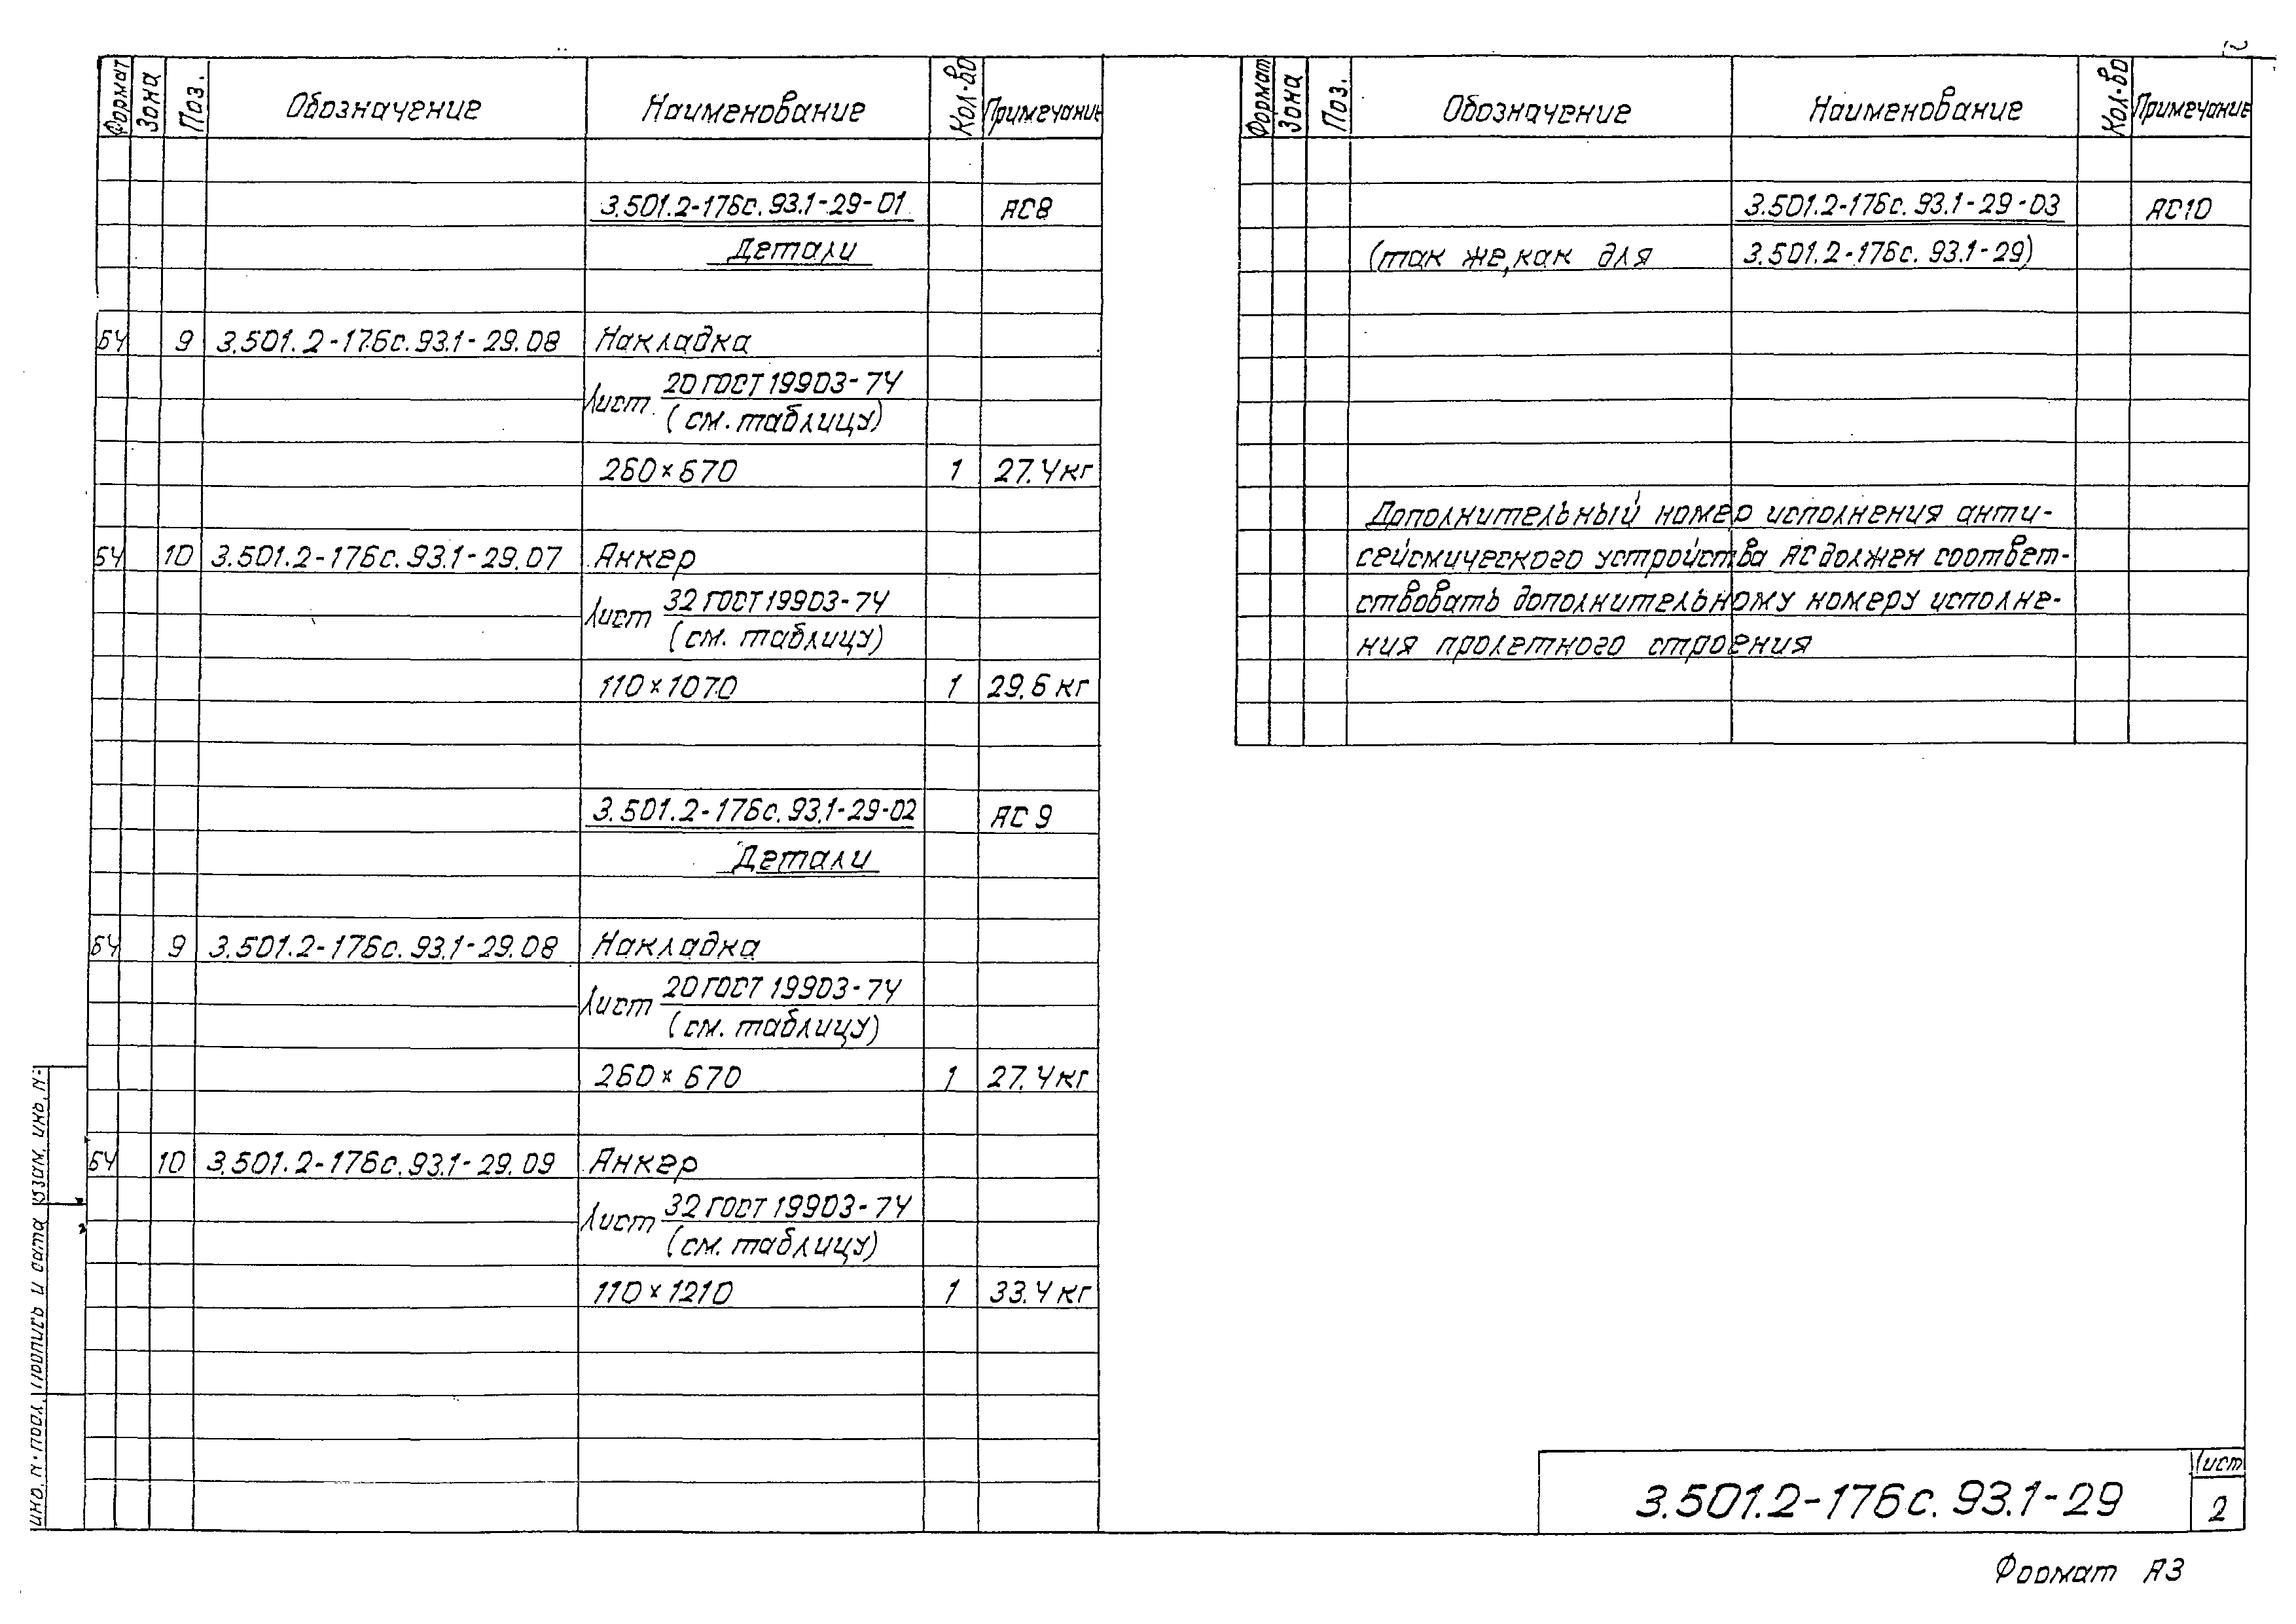 Формат Зона Поз. Обозначение Наименование Кол-во Примечание
3.501.2-176с.93.1-29-01 АС8
Детали
БЧ 9 3.501.2-176с.93.1-29.08 Накладка
Лист 20 ГОСТ 19903-74
(см. таблицу)
260×670 1 27.4кг
БЧ 10 3.501.2-176с.93.1-29.07 Анкер
Лист 32 ГОСТ 19903-74
(см. таблицу)
110×1070 1 29.6 кг
3.501.2-176с.93.1-29-02 АС 9
Детали
БЧ 9 3.501.2-176с.93.1-29.08 Накладка
Лист 20 ГОСТ 19903-74
(см. таблицу)
260×670 1 27.4кг
БЧ 10 3.501.2-176с.93.1-29.09 Анкер
Лист 32 ГОСТ 19903-74
(см. таблицу)
110×1210 1 33.4 кг
Формат Зона Поз. Обозначение Наименование Кол-во Примечание
3.501.2-176с.93.1-29-03 АС10
(так же, как для 3.501.2-176с.93.1-29)
Дополнительный номер исполнения анти-
сейсмического устройства АС должен соответ-
ствовать дополнительному номеру исполне-
ния пролетного строения
инв. N подл. подпись и дата взам. инв. N
3.501.2-176с.93.1-29
Лист
2
Формат А3